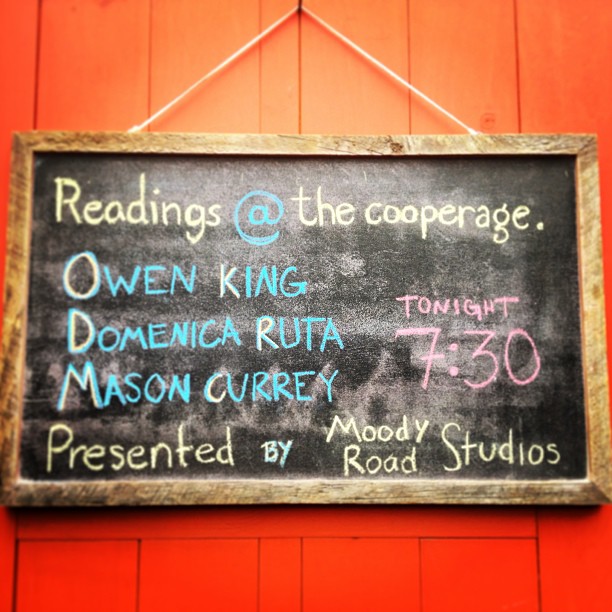 Readings @ the cooperage.
OWEN KING
DOMENICA RUTA
MASON CURREY
TONIGHT
7:30
Presented BY Moody Road Studios